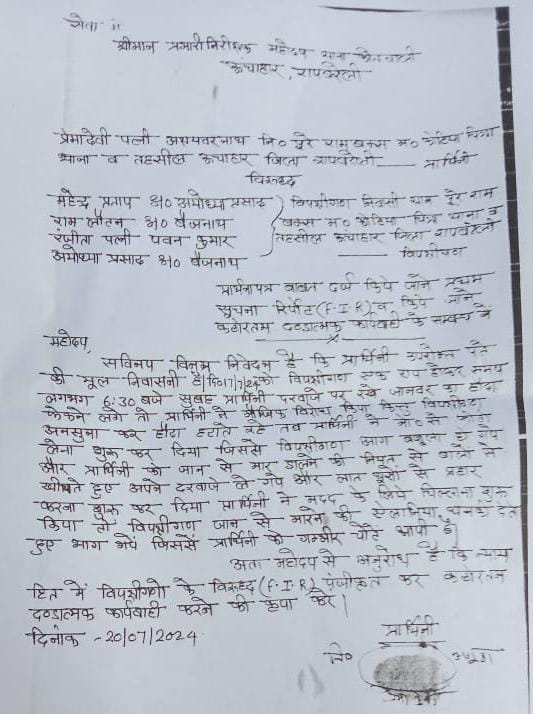 सेवा में
श्रीमान प्रभारी निरीक्षक महोदय थाना कोतवाली
ऊंचाहार, रायबरेली
प्रेमादेवी पत्नी अक्षयवरनाथ नि० पूरे रामबक्स म० कोटिया चित्रा
थाना व तहसील ऊंचाहार जिला रायबरेली —— प्रार्थिनी
विरुद्ध
महेन्द्र प्रताप S/O अयोध्या प्रसाद
राम लौटन S/O बैजनाथ
रंजीता पत्नी पवन कुमार
अयोध्या प्रसाद S/O बैजनाथ
विपक्षीगण निवासी ग्राम पूरे राम
बक्स म० कोटिया चित्रा थाना व
तहसील ऊंचाहार जिला रायबरेली
—— विपक्षीगण
प्रार्थनापत्र बावत दर्ज किये जाने प्रथम
सूचना रिर्पोट (F.I.R) व किये जाने
कठोरतम दण्डात्मक कार्यवाही के सम्बन्ध में
महोदय,
सविनय विनम्र निवेदन है कि प्रार्थिनी उपरोक्त पते
की मूल निवासनी है। दि० 17/7/24 को विपक्षीगण एक राय होकर समय
लगभग 6:30 बजे सुबह प्रार्थिनी दरवाजे पर रखे जानवर का हौदा
फेकने लगे तो प्रार्थिनी ने मौखिक विरोध किया किन्तु विपक्षीगण
अनसुना कर हौदा हटाते रहे तब प्रार्थिनी ने मो० से फोटो
लेना शुरू कर दिया जिससे विपक्षीगण आग बबूला हो गये
और प्रार्थिनी को जान से मार डालने की नियत से बालों से
खींचते हुए अपने दरवाजे ले गये और लात घूसों से प्रहार
करना शुरू कर दिया प्रार्थिनी ने मदद के लिये चिल्लाना शुरू
किया तो विपक्षीगण जान से मारने की धमकी देते
हुए भाग गये जिससे प्रार्थिनी को गम्भीर चोटें आयी है।
अतः महोदय से अनुरोध है कि न्याय
हित में विपक्षीगणो के विरुद्ध (F.I.R) पंजीकृत कर कठोरतम
दण्डात्मक कार्यवाही करने की कृपा करें।
दिनांक - 20/07/2024
प्रार्थिनी
नि० अंगूठा